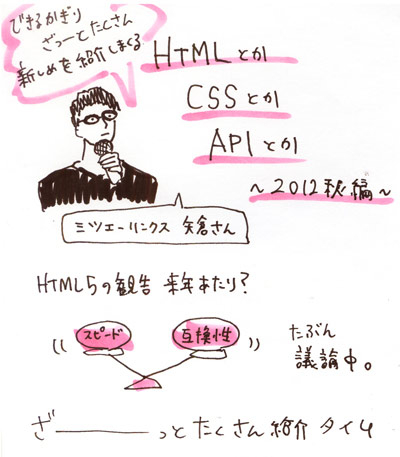 できるかぎり
ざっーとたくさん
新しめを紹介しまくる
HTMLとか
CSSとか
APIとか
～2012秋編～
ミツエーリンクス 矢倉さん
HTML5の観告 来年あたり?
スピード
互換性
たぶん
議論中。
ざーーっとたくさん紹介タイム